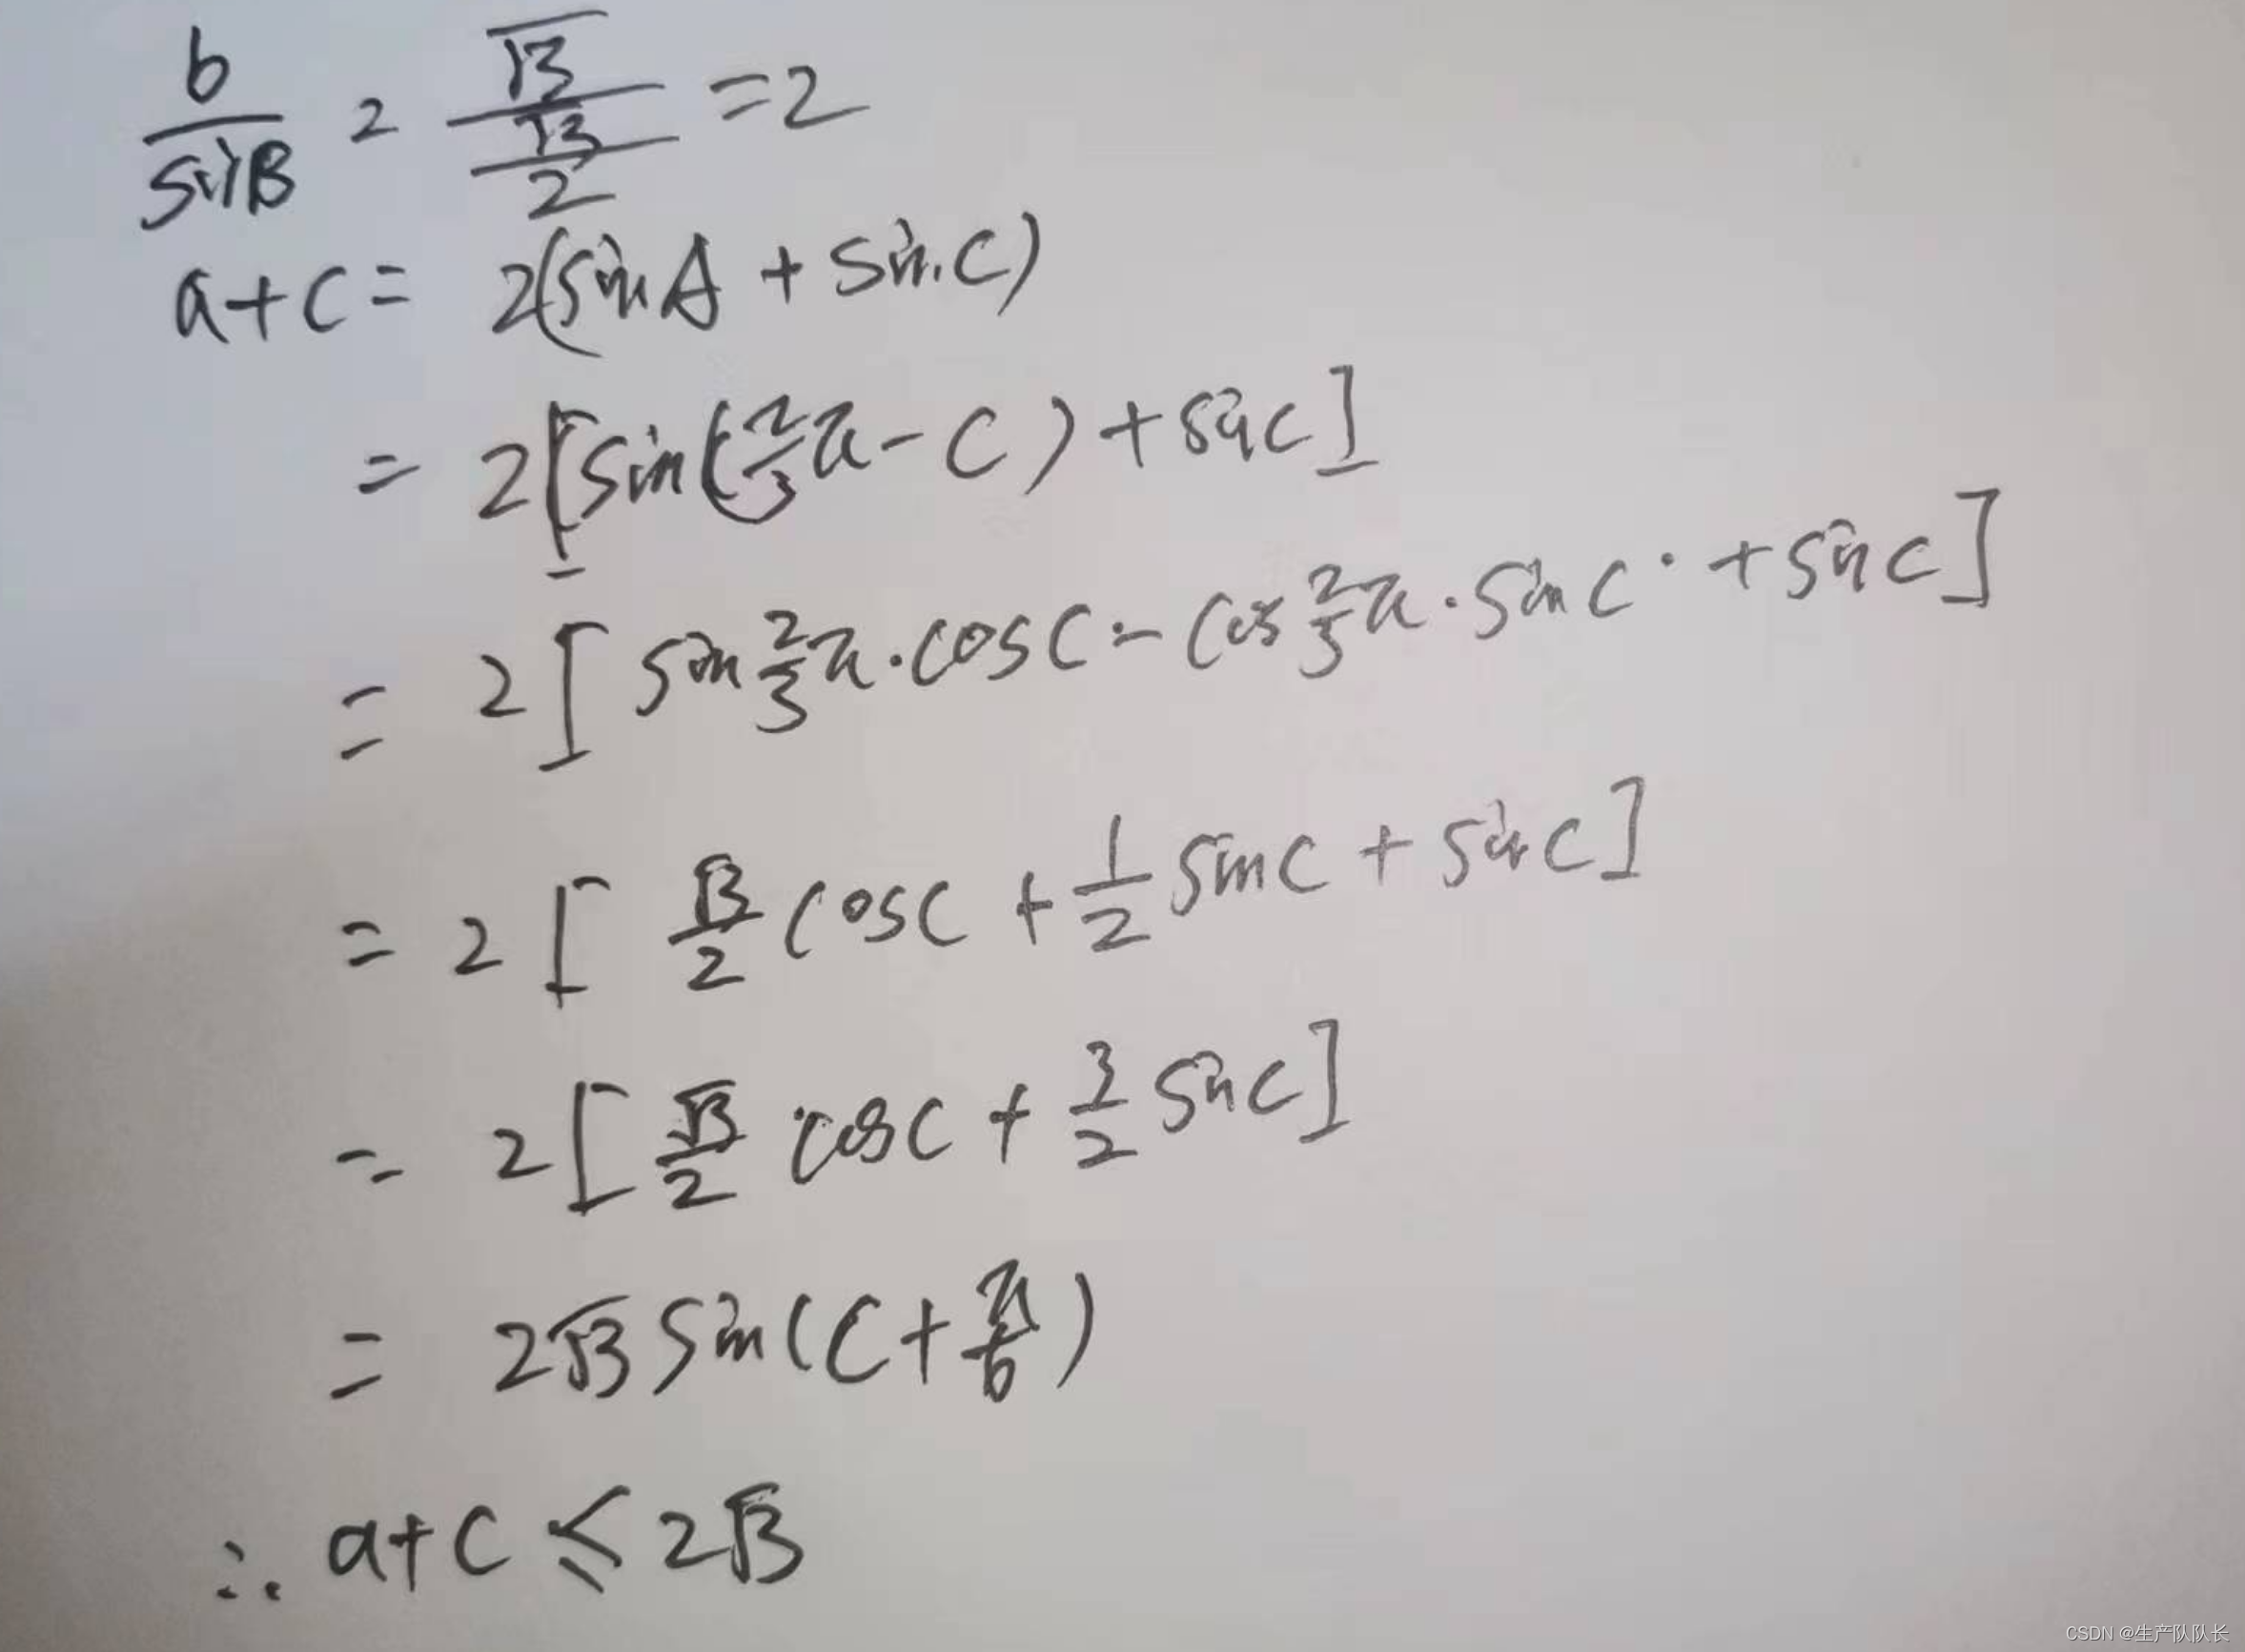 b/sinB = √3/(√3/2) = 2
a+c = 2(sinA + sin.C)
= 2[sin(2/3π - C) + sinC]
= 2[sin2/3π·cosC - cos2/3π·sinC + sinC]
= 2[√3/2 cosC + 1/2 sinC + sinC]
= 2[√3/2 cosC + 3/2 sinC]
= 2√3 sin(C + π/6)
∴ a+c ≤ 2√3
CSDN @生产队队长